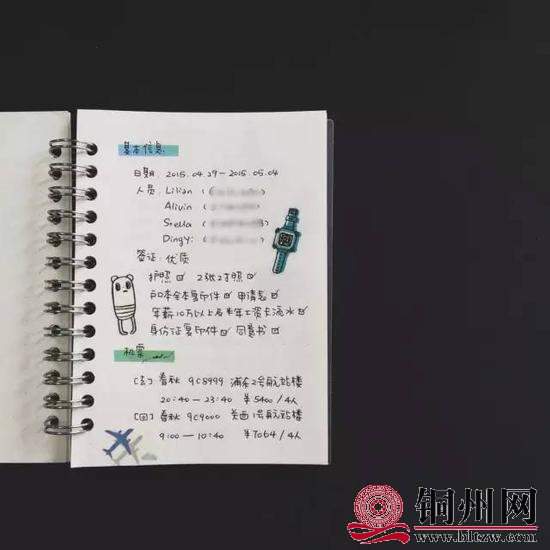 基本信息
日期: 2015.04.29-2015.05.04
人员: Lilian (
Alivin (
Stella (
Dingyi (
签证: 优质
护照 2张2寸照
户口本全本复印件 申请表
年薪10万以上后半年工资卡流水
身份证复印件 同意书
机票
(去) 春秋 9C8999 浦东2号航站楼
20:40-23:40 ¥5400/4人
(回) 春秋 9C9000 关西1号航站楼
9:00-10:40 ¥7064/4人
铜州网
www.bltzw.com